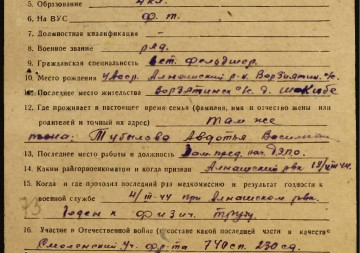 5. Образование 4 кл.
6. На ВУС ф. т.
7. Должностная квалификация –
8. Военное звание ряд.
9. Гражданская специальность вет. фельдшер
10. Место рождения Алнашский р-н Ворзятчи с/с.
11. Последнее место жительства с/с. д.
12. Где проживает в настоящее время семья (фамилия, имя и отчество жены или
родителей и точный их адрес) там же
жена: Тубылова Авдотья
13. Последнее место работы и должность Зам. пред.
14. Каким райгорвоенкоматом и когда призван Алнашским рвк
15. Когда и где проходил последний раз медкомиссию и результат годности к
военной службе 4/III-44 при Алнашском рвк.
годен к физич. труду.
16. Участие в Отечественной войне (в составе какой последней части и качестве
Смоленский 740 сп. 230 сд.